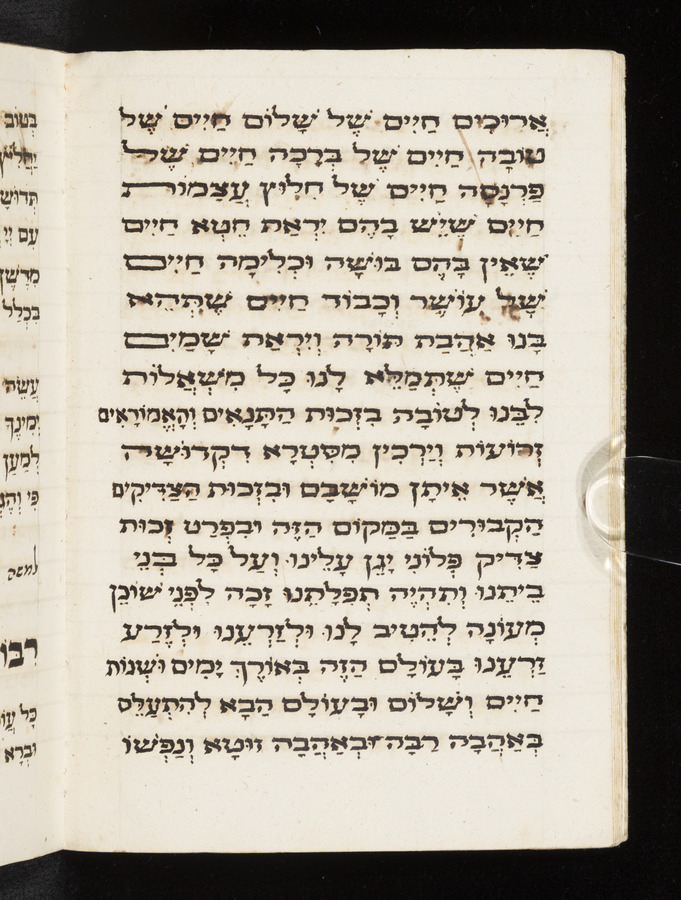 אֲרוּכִים חַיִּים שֶׁל שָׁלוֹם חַיִּים שֶׁל
טוֹבָה חַיִּים שֶׁל בְּרָכָה חַיִּים שֶׁל
פַּרְנָסָה חַיִּים שֶׁל חִלּוּץ עֲצָמוֹת
חַיִּים שֶׁיֵּשׁ בָּהֶם יִרְאַת חֵטְא חַיִּים
שֶׁאֵין בָּהֶם בּוּשָׁה וּכְלִימָה חַיִּים
שֶׁל עוֹשֶׁר וְכָבוֹד חַיִּים שֶׁתְּהֵא
בָנוּ אַהֲבַת תּוֹרָה וְיִרְאַת שָׁמַיִם
חַיִּים שֶׁתְּמַלֵּא לָנוּ כָּל מִשְׁאֲלוֹת
לִבֵּנוּ לְטוֹבָה בִּזְכוּת הַתַּנָאִים וְהָאֲמוֹרָאִים
זְרוֹעוֹת וְיַרְכִין מִסִּטְרָא דִקְדוּשָׁה
אֲשֶׁר אֵיתָן מוֹשָׁבָם וּבִזְכוּת הַצַּדִּיקִים
הַקְּבוּרִים בַּמָּקוֹם הַזֶּה וּבִפְרַט זְכוּת
צַדִּיק פְּלוֹנִי יָגֵן עָלֵינוּ וְעַל כָּל בְּנֵי
בֵיתֵנוּ וְתִהְיֶה תְפִלָּתֵנוּ זָכָה לִפְנֵי שׁוֹכֵן
מְעוֹנָה לְהֵטִיב לָנוּ וּלְזַרְעֵנוּ וּלְזֶרַע
זַרְעֵנוּ בָּעוֹלָם הַזֶּה בְּאוֹרֶךְ יָמִים וּשְׁנוֹת
חַיִּים וְשָׁלוֹם וּבָעוֹלָם הַבָּא לְהִתְעַלֵּס
בְּאַהֲבָה רַבָּה וּבְאַהֲבָה זוּטָא וְנַפְשׁוֹ